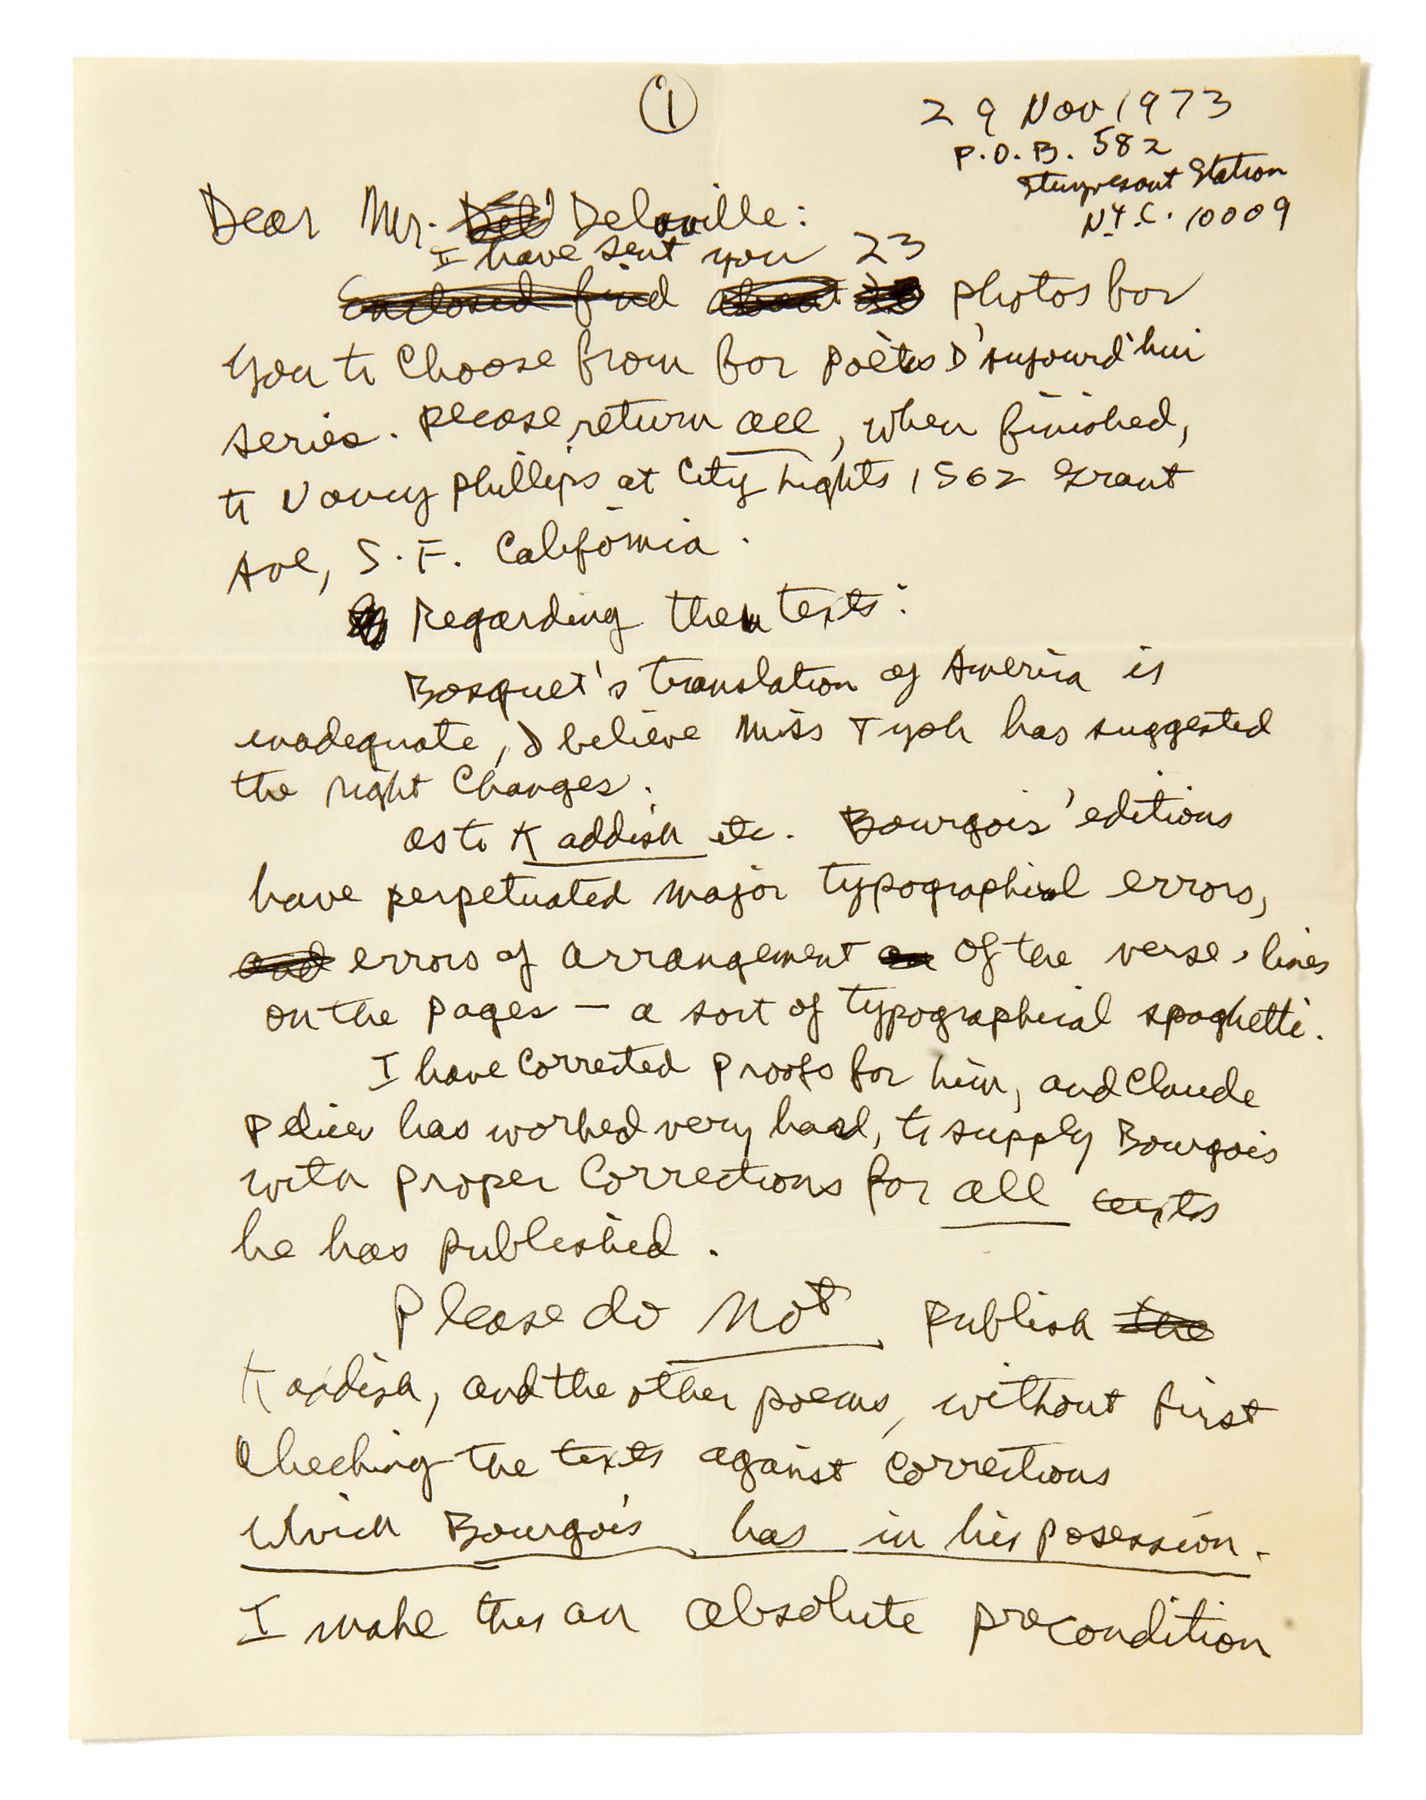 1
29 Nov 1973
P.O.B. 582
Stuyvesant Station
N.Y.C. 10009
Dear Mr. Delanville:
I have sent you 23
Enclosed find about photos for
you to choose from for Poètes D'aujourd'hui
series. Please return all, when finished,
to Nancy Phillips at City Lights 1562 Grant
Ave, S.F. California.
Regarding the texts:
Bosquet's translation of America is
inadequate, I believe Miss Tysh has suggested
the right changes.
As to Kaddish etc. Bourgois' editions
have perpetuated major typographical errors,
and errors of arrangement of the verse-lines
on the pages — a sort of typographical spaghetti.
I have corrected proofs for him, and Claude
Pelieu has worked very hard, to supply Bourgois
with proper corrections for all texts
he has published.
Please do Not publish the
Kaddish, and the other poems, without first
checking the texts against corrections
which Bourgois has in his posession.
I make this an absolute precondition